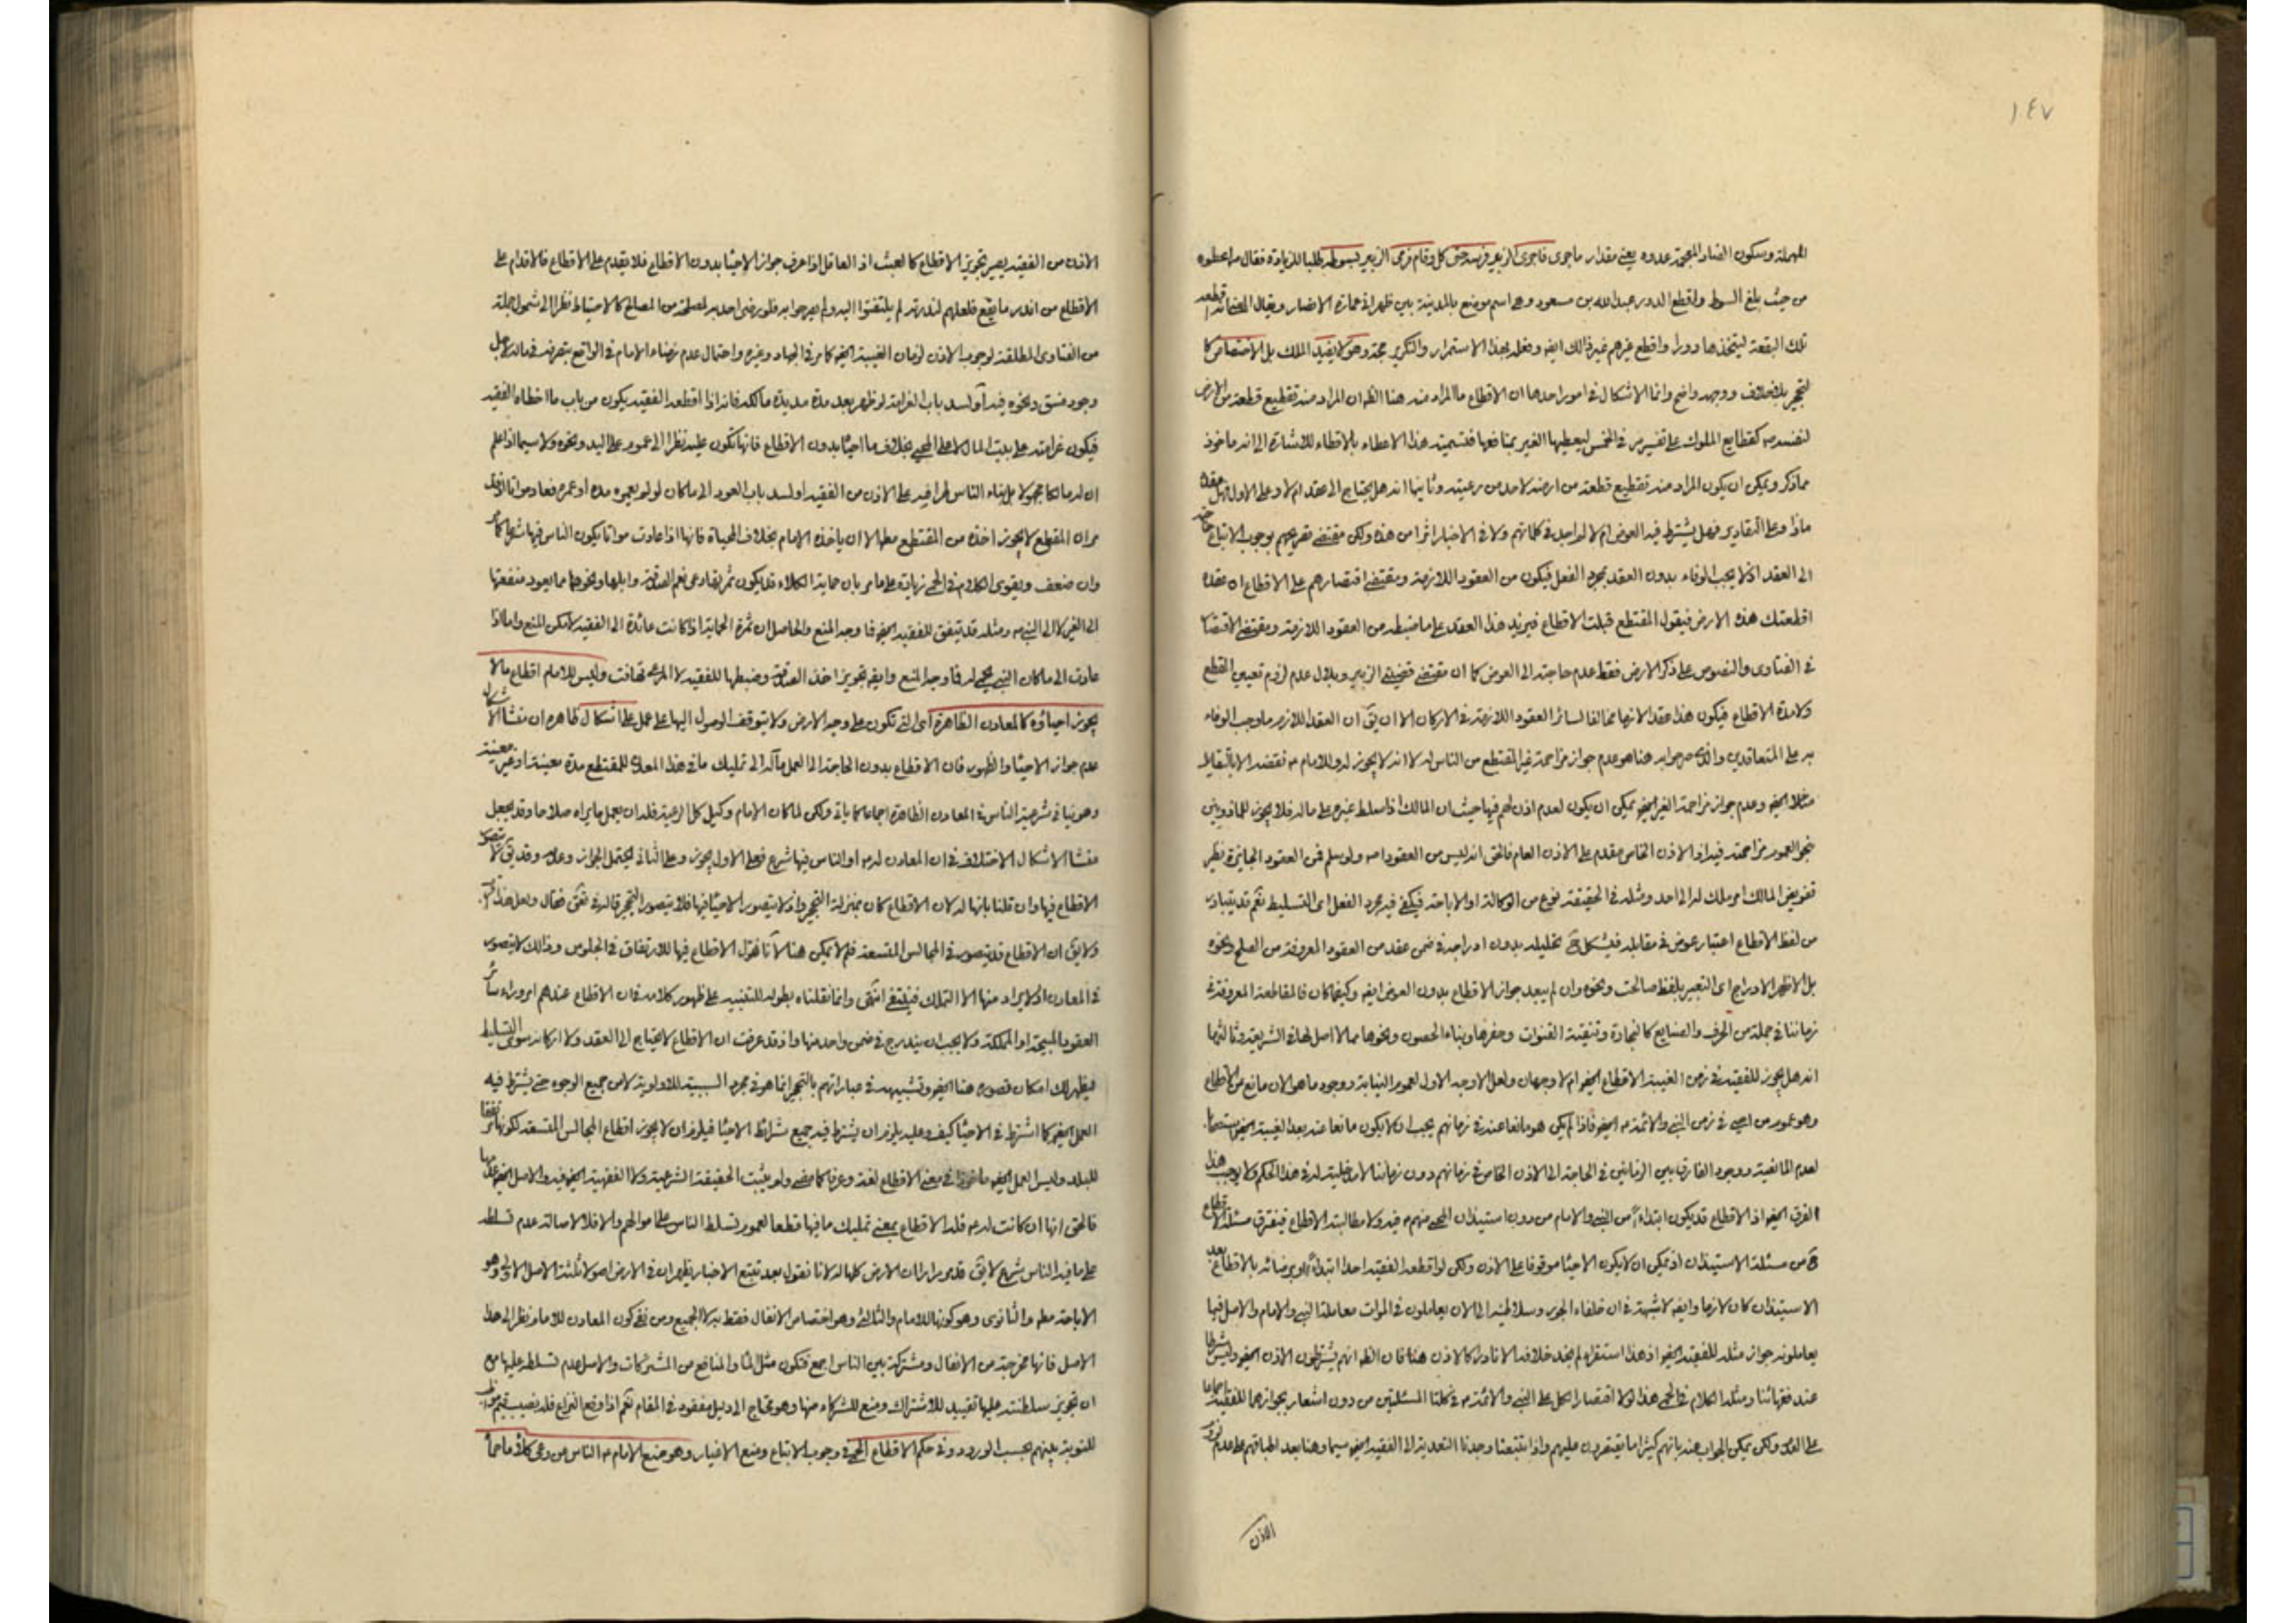 ١٤٧
المهملة وسكون الضاد المعجمة عدوه يعني مقدار ما جرى فاجرى الزبير فرسه حتى كل وقام فرمى الزبير بسوطه طلبا للزيادة فقال ص اعطوه
من حيث بلغ السوط واقطع الدور عبدالله بن مسعود وهو اسم موضع بالمدينة بين ظهراني عمارة الانصار ويقال المعنى انه اقطعه
تلك البقعة ليتخذها دورا واقطع غيرهم غير ذالك ايضا وفعله بهذا الاستمرار والتكرير حجة وهو لا يفيد الملك بل الاختصاص كا
لتحجير بلا خلاف ووجهه واضح وانما الاشكال في امور احدها ان الاقطاع ما المراد منه هنا الظ ان المراد منه تقطيع قطعة من الارض
لنفسه كقطايع الملوك على تفسير مر في الخمس ليعطيها الغير بمنافعها فتسمية هذا الاعطاء بالاقطاع للاشارة الى انه ماخوذ
مما ذكر ويمكن ان يكون المراد منه تقطيع قطعة من ارضه لاحد من رعيته وثانيها انه هل يحتاج الى عقد ام لا وعلى الاول فهل عقده
ماذا وعلى التقادير فهل يشترط فيه العوض ام لا لم اجد في كلماتهم ولا في الاخبار اثرا من هذه ولكن مقتضى تصريحهم بوجوب الاتباع
الى العقد اذ لا يجب الوفاء بدون العقد بمجرد الفعل فيكون من العقود اللازمة ومقتضى اقتصارهم على الاقطاع ان عقده
اقطعتك هذه الارض فيقول المقتطع قبلت الاقطاع فيزيد هذا العقد على ما ضبطه من العقود اللازمة ومقتضى الاقتصار
في الفتاوى والنصوص على ذكر الارض فقط عدم حاجته الى العوض كما ان مقتضى قضية الزبير وبلال عدم لزوم تعيين القطع
ولا مدة الاقطاع فيكون هذا عقد لازما مخالفا لسائر العقود اللازمة في الاركان الا ان يق ان العقد اللازم ما وجب الوفاء
به على المتعاقدين والذي صرحوا به هنا هو عدم جواز مزاحمة غير المقتطع من الناس له لا انه لا يجوز له وللامام ع نقضه الا بالتقايل
مثلا ايضا وعدم جواز مزاحمة الغير ايضا يمكن ان يكون لعدم اذن لهم فيها حيث ان المالك اذا سلط غيره على ماله فلا يجوز للماذونين
بنحو العموم مزاحمته فيه اذ الاذن الخاص مقدم على الاذن العام فالحق انه ليس من العقود ولو سلم فمن العقود الجايزة نظير
تفويض المالك امر ملك له الى احد ومثله في الحقيقة نوع من الوكالة او الاباحة فيكفي فيه مجرد الفعل اي التسليط نعم قد يتبادر
من لفظ الاقطاع اعتبار عوض في مقابله فيشكل ح تحليله بدون ادراجه في ضمن عقد من العقود المعروفة من الصلح ونحوه
بل الاظهر الادراج اي التعبير بلفظ صالحت ونحوه وان لم يبعد جواز الاقطاع بدون العوض ايضا وكيفما كان فالمقاطعة المعروفة في
زماننا في جملة من الحرف والصنايع كالنجارة وتنقية القنوات وحفرها وبناء الحصون ونحوها مما لا اصل لها في الشريعة وثالثها
انه هل يجوز للفقيه في زمن الغيبة الاقطاع ايضا ام لا وجهان ولعل الاوجه الاول لعموم النيابة ووجود ما هو الان مانع من الاقطاع
وهو عموم من احيى في زمن النبي والائمة ع ايضا فاذا لم يكن هو مانعا عنه في زمانهم يجب ان لا يكون مانعا عنه بعد الغيبة ايضا
لعدم المانعية ووجود الفارق بين الزمانين في الحاجة الى الاذن الخاص في زمانهم دون زماننا لا مدخلية له في هذا الحكم ولا يوجب هذا
الفرق ايضا اذ الاقطاع قد يكون ابتداء من النبي والامام من دون استيذان المحيي منهم ع فيه ولا مطالبته الاقطاع فيفترق مسئلة الاقطاع
ح من مسئلة الاستيذان اذ يمكن ان لا يكون الاحيا موقوفا على الاذن ولكن لو اقطعه الفقيه احدا ابتداء او برضائه بالاقطاع بعد
الاستيذان كان لازما وايضا لا شبهة في ان خلفاء الجور وسلاطينه الى الان يعاملون في الموات معاملة النبي والامام والاصل فيها
يعاملونه جواز مثله للفقيه ايضا اذ هذا استقراء لم نجد خلافه الا نادرا كالاذن هنا فان الظ انهم يشترطون الاذن ايضا وليس شرطا
عند فقهائنا ومثله الكلام في الحمى هذا لولا اقتصار الكل على النبي والائمة ع في كلتا المسئلتين من دون اشعار بجوازهما للفقيه اجماعا
على العدم ولكن يمكن الجواب عنه بانهم كثيرا ما يقتصرون عليهم واذا تتبعنا وجدنا التعدية الى الفقيه ايضا سيما وهنا بعد اطباقهم على عدم لزوم
الاذن
الاذن من الفقيه يصير تجويز الاقطاع كالعبث اذ العاقل اذا عرف جواز الاحيا بدون الاقطاع فلا يقدم على الاقطاع فالاقدام على
الاقطاع من اندر ما يقع فلعلهم لندرته لم يلتفتوا اليه ولم يصرحوا به فلو رضى احد به لمصلحة من المصالح كالاحتياط نظرا الى شمول جملة
من الفتاوى المطلقة لوجوب الاذن لزمان الغيبة ايضا كما مر في الجهاد وغيره واحتمال عدم رضاء الامام في الواقع بتصرفه في ماله لاجل
وجود فسق ونحوه فيه او لسد باب الغرامة لو ظهر بعد مدة مديدة مالكه فانه اذا اقطعه الفقيه يكون من باب ما اخطاه الفقيه
فيكون غرامته على بيت المال لا على المحيي بخلاف ما احيا بدون الاقطاع فانها تكون عليه نظرا الى عموم على اليد ونحوه ولا سيما اذا علم
ان له مالكا مجهولا بل بناء الناس طرا فيه على الاذن من الفقيه او لسد باب العود الى ما كان لو لم يعمره مدة او عمره فعاد مواتا اذ قد
مر ان المقطع لا يجوز اخذه من المقتطع مطلقا الا ان ياخذه الامام بخلاف المحياة فانها اذا عادت مواتا يكون الناس فيها شرعا كما مر
وان ضعف ويقوى الكلام في الحمى زيادة على ما مر بان حماية الكلاء قد يكون ثمرتها رعى نعم الصدقة وابلها ونحوها مما يعود منفعتها
الى الغير لا الى النبي ص ومثله قد يتفق للفقيه ايضا فما وجه المنع والحاصل ان ثمرة الحماية اذا كانت عائدة الى الفقيه لامكن المنع واما اذا
عادت الى ما كان النبي يحمي له فما وجه المنع وايضا تجويز اخذ الصدقة وضبطها للفقيه لا المرعى تهافت وليس للامام اقطاع ما لا
يجوز احياؤه كالمعادن الظاهرة اي التي تكون على وجه الارض ولا يتوقف الوصول اليها على عمل على اشكال ظاهره ان منشا الاشكال
عدم جواز الاحيا والظهور فان الاقطاع بدون الحاجة الى العمل مآله الى تمليك ما في هذا المعدن للمقتطع مدة معينة او غير معينة
وهو ينافي شرعية الناس في المعادن الظاهرة اجماعا كما ياتي ولكن لما كان الامام وكيل كل الرعية فله ان يعمل ما يراه صلاحا وقد يجعل
منشا الاشكال الاختلاف في ان المعادن له ع او الناس فيها شرع فعلى الاول يجوز وعلى الثاني يحتمل الجواز وعدمه وقد يق لا يتصور
الاقطاع فيها وان قلنا بانها له لان الاقطاع كان بمنزلة التحجير واذ لا يتصور الاحيا فيها فلا يتصور التحجير
ولا يق ان الاقطاع قد يتصور في المجالس المتسعة فلم لا يمكن هنا لانا نقول الاقطاع فيها للارتفاق في الجلوس وذالك لا يتصور
في المعادن اذ لا يراد منها الا التملك فينتفي انتهى وانما نقلناه بطوله للتنبيه على ظهور كلامه في ان الاقطاع عندهم امر وراء سائر
العقود المبيحة او المملكة ولا يجب ان يندرج في ضمن واحد منها واذ قد عرفت ان الاقطاع لا يحتاج الى العقد ولا اركانه سوى التسليط
فيظهر لك امكان تصوره هنا ايضا وتشبيهه في عباراتهم بالتحجير انما هو في مجرد السببية للاولوية لا من جميع الوجوه حتى يشترط فيه
العمل ايضا كما اشترط في الاحيا كيف وعليه يلزم ان يشترط فيه جميع شرائط الاحيا فيلزم ان لا يجوز اقطاع المجالس المتسعة لكونها مرتفقا
للبلد وليس العمل ايضا ماخوذا في معنى الاقطاع لغة وعرفا كما مضى ولم يثبت الحقيقة الشرعية ولا الفقهية ايضا فيه والاصل ايضا عدمها
فالحق انها ان كانت له ع فله الاقطاع بمعنى تمليك ما فيها قطعا لعموم تسلط الناس على اموالهم والا فلا لاصالة عدم تسلطه
على ما فيه الناس شرع لا يق قد مر مرارا ان الارض كلها له لانا نقول بعد تتبع الاخبار يظهر ان في الارض اصولا ثلثة الاصل الاولى وهو
الاباحة مطلقا والثانوى وهو كونها للامام والثالثى وهو اختصاص الانفال فقط به لا الجميع ومن نفى كون المعادن للامام نظر الى هذا
الاصل فانها مخرجة من الانفال ومشتركة بين الناس اجمع فتكون مثل الماء والمنافع من المشتركات والاصل عدم تسلطه عليها مع
ان تجويز سلطنته عليها تقييد للاشتراك ومنع للشركاء منها وهو محتاج الى دليل مفقود في المقام نعم اذا وقع النزاع فله نصيب قيم
للنوبة بينهم بحسب الورود وفي حكم الاقطاع الحمى في وجوب الاتباع ومنع الاغيار وهو منع الامام ع الناس عن رعى كلاء ما حماه